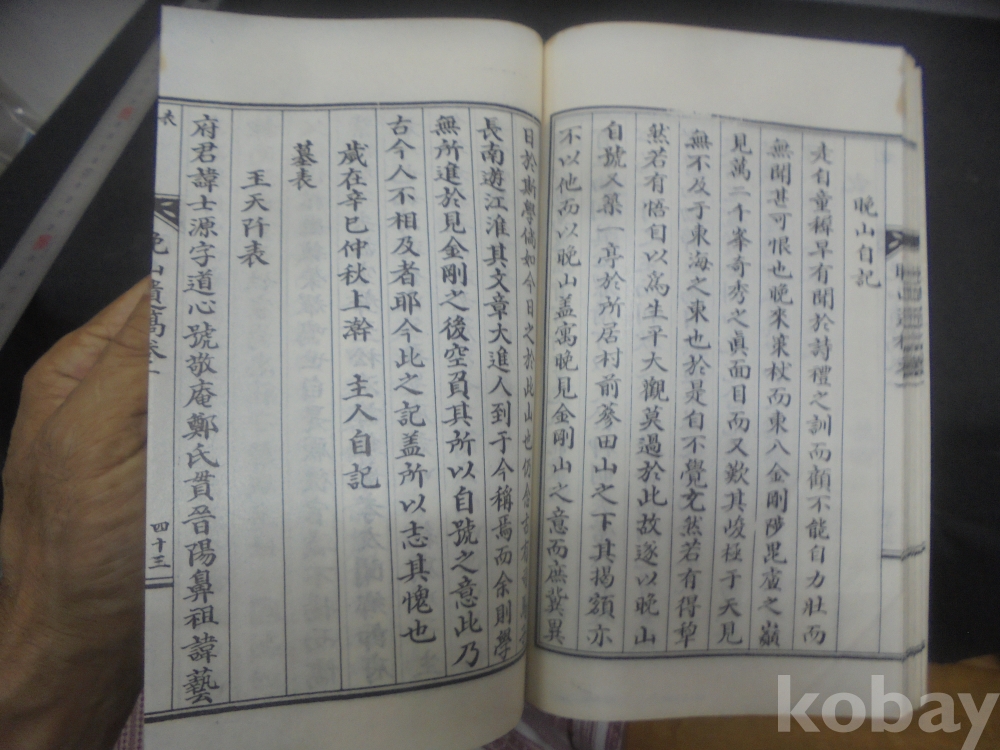 晩山自記
走自童穉早有聞於詩禮之訓而顧不能自力壯而
無聞甚可恨也晩來策杖而東入金剛陟毘盧之巔
見萬二千峯奇秀之眞面目而又歎其峻極于天見
無不及于東海之東也於是自不覺充然若有得犂
然若有悟自以爲生平大觀莫過於此故遂以晩山
自號又築一亭於所居村前蔘田山之下其揭額亦
不以他而以晩山盖寓晩見金剛山之意而庶冀異
日於斯學倘如今日之於此山也
長南遊江淮其文章大進人到于今稱焉而余則學
無所進於見金剛之後空負其所以自號之意此乃
古今人不相及者耶今此之記盖所以志其愧也
歲在辛巳仲秋上澣 主人自記
墓表
王天阡表
府君諱士源字道心號敬庵鄭氏貫晉陽鼻祖諱藝
表
晩山遺藁卷
四十三
kobay